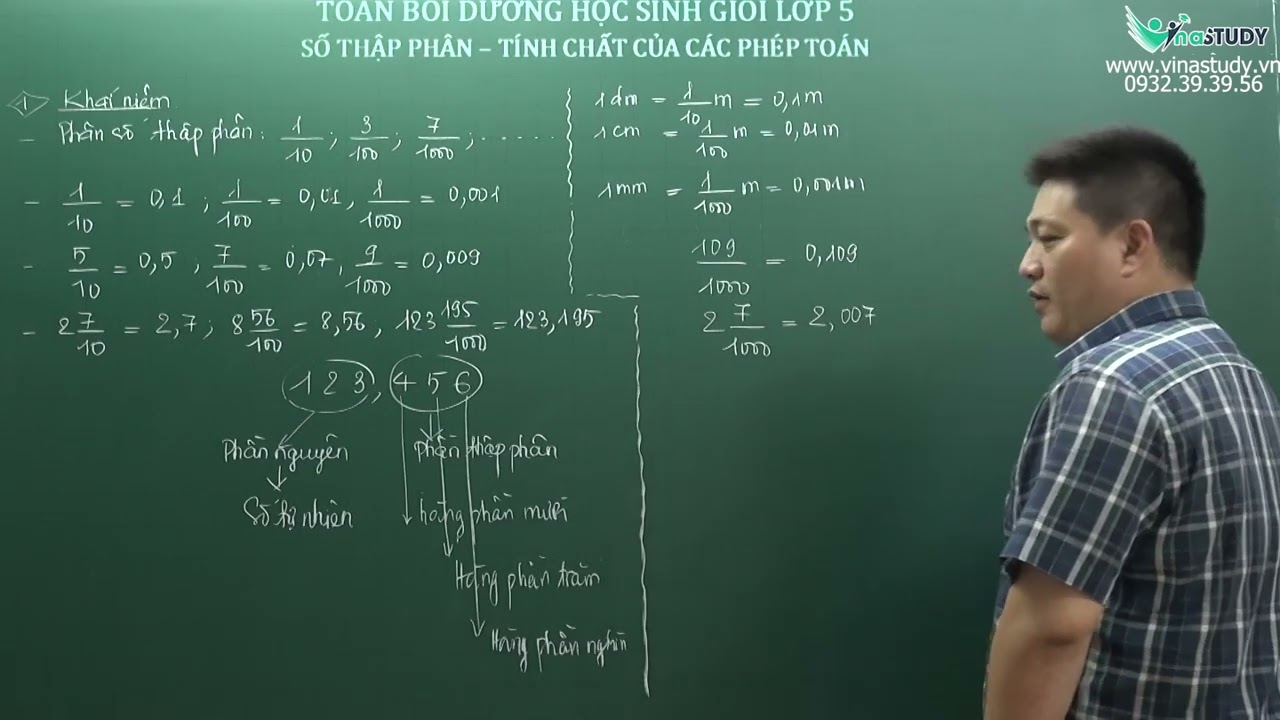 TOÁN BỒI DƯỠNG HỌC SINH GIỎI LỚP 5
SỐ THẬP PHÂN – TÍNH CHẤT CỦA CÁC PHÉP TOÁN
VinaSTUDY
www.vinastudy.vn
0932.39.39.56
1 Khái niệm
- Phân số thập phân: 1/10 ; 3/100 ; 7/1000 ; ......
- 1/10 = 0,1 ; 1/100 = 0,01 , 1/1000 = 0,001
- 5/10 = 0,5 , 7/100 = 0,07 , 9/1000 = 0,009
- 2 7/10 = 2,7 ; 8 56/100 = 8,56 , 123 195/1000 = 123,195
123,456
Phần nguyên
Phần thập phân
Số tự nhiên
hàng phần mười
Hàng phần trăm
Hàng phần nghìn
1 dm = 1/10 m = 0,1m
1 cm = 1/100 m = 0,01m
1 mm = 1/1000 m = 0,001m
109/1000 = 0,109
2 7/1000 = 2,007